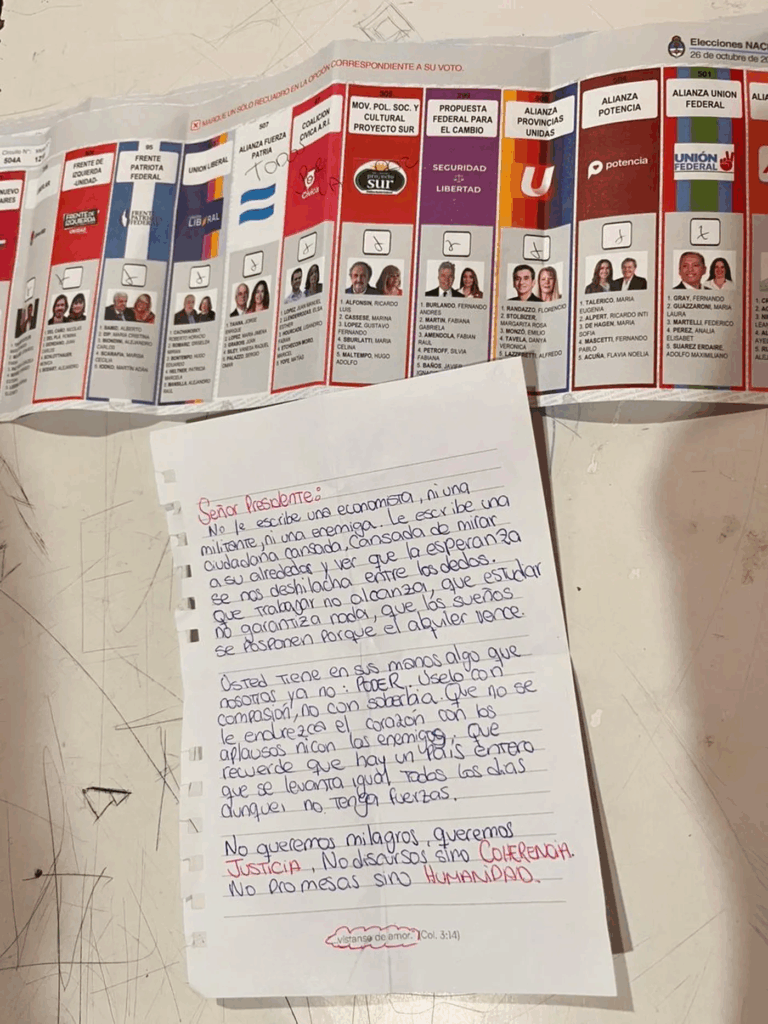 Elecciones NAC
26 de octubre de 20
MARQUE UN SOLO RECUADRO EN LA OPCIÓN CORRESPONDIENTE A SU VOTO.
Circuito N°:
504A
NUEVO
AIRES
FRENTE DE
IZQUIERDA
-UNIDAD-
FRENTE DE
IZQUIERDA
UNIDAD
FRENTE
PATRIOTA
FEDERAL
UNION LIBERAL
507
ALIANZA FUERZA
PATRIA
TODOS
COALICION
CIVICA A.R.I.
MOV. POL. SOC. Y
CULTURAL
PROYECTO SUR
proyecto
sur
1. ALFONSIN, RICARDO
LUIS
2. CASSESE, MARINA
3. LOPEZ, GUSTAVO
FERNANDO
4. SBURLATTI, MARIA
CELINA
5. MALTEMPO, HUGO
ADOLFO
PROPUESTA
FEDERAL PARA
EL CAMBIO
SEGURIDAD
LIBERTAD
1. BURLANDO, FERNANDO
ANDRES
2. MARTIN, FABIANA
GABRIELA
3. AMENDOLA, FABIAN
RAUL
4. PETROFF, SILVIA
FABIANA
5. BAÑOS, JAVIER
ALIANZA
PROVINCIAS
UNIDAS
U
1. RANDAZZO, FLORENCIO
2. STOLBIZER,
MARGARITA ROSA
3. MONZO, EMILIO
4. TAVELA, DANYA
VERONICA
5. LAZZERETTI, ALFREDO
ALIANZA
POTENCIA
potencia
1. TALERICO, MARIA
EUGENIA
2. ALPERT, RICARDO INTI
3. DE HAGEN, MARIA
SOFIA
4. MASCETTI, FERNANDO
PABLO
5. ACUÑA, FLAVIA NOELIA
501
ALIANZA UNION
FEDERAL
UNIÓN
FEDERAL
1. GRAY, FERNANDO
2. QUAZZARONI, MARIA
LAURA
3. MARTELLI, FEDERICO
4. PEREZ, ANALIA
ELISABET
5. SUAREZ ERDAIRE,
ADOLFO MAXIMILIANO
Señor Presidente:
No le escribe una economista, ni una
militante, ni una enemiga. Le escribe una
ciudadana cansada, cansada de mirar
a su alrededor y ver que la esperanza
se nos deshilacha entre los dedos.
Que trabajar no alcanza, que estudiar
no garantiza nada, que los sueños
se posponen porque el alquiler vence.
Usted tiene en sus manos algo que
nosotros ya no: PODER. Úselo con
compasión, no con soberbia. Que no se
le endurezca el corazón con los
aplausos ni con los enemigos. Que
recuerde que hay un País entero
que se levanta igual todos los días
aunque no tenga fuerzas.
No queremos milagros, queremos
JUSTICIA, No discursos sino COHERENCIA.
No promesas sino HUMANIDAD.
...vístanse de amor." (Col. 3:14)